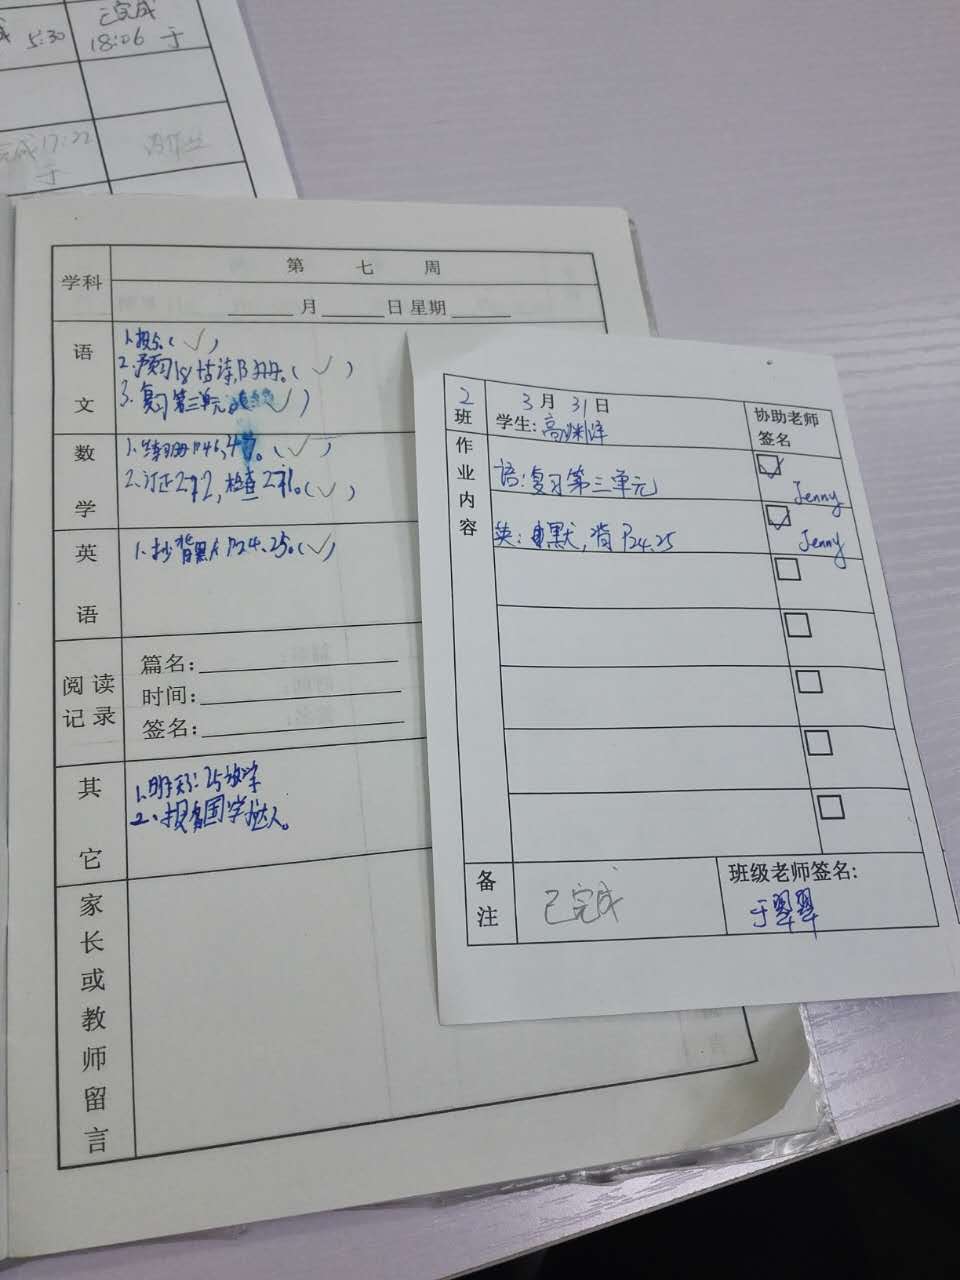 5:30
已完成
18:06 于
完成17:22
于
学科
第 七 周
月 日 星期
语文
1.报点(✓)
2.预习18古诗,B册。(✓)
3.复习第三单元
数学
1.练习册P46,47。(✓)
2.订正272,检查271。(✓)
英语
1.抄背默A P24、25。(✓)
阅读记录
篇名:
时间:
签名:
其它
1.明天3:25放学
2.报名国学达人。
家长或教师留言
2班
3月31日
学生:高渊洋
协助老师签名
作业内容
语:复习第三单元
Jenny
英:默,背P24、25
Jenny
备注
已完成
班级老师签名:
于翠翠